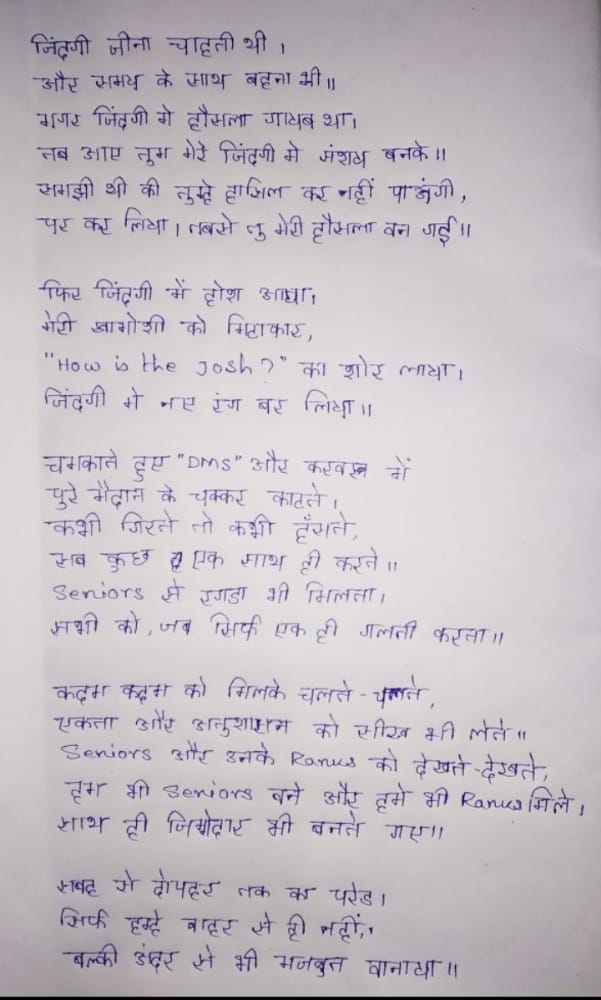 जिंदगी जीना चाहती थी ।
और समय के साथ बहना भी॥
मगर जिंदगी मे हौसला गायब था।
तब आए तुम मेरे जिंदगी मे संशय बनके॥
समझी थी की तुम्हे हासिल कर नहीं पाऊंगी,
पर कर लिया। तबसे तु मेरी हौसला बन गई॥
फिर जिंदगी में होश आया।
मेरी खामोशी को मिटाकार,
"How is the Josh?" का शोर लाया।
जिंदगी मे नए रंग बर लिया॥
चमकाते हुए "DMS" और में
पुरे मैदान के चक्कर काटते।
कभी गिरते तो कभी हँसते,
सब कुछ एक साथ ही करते॥
Seniors से रगडा भी मिलता।
सभी को, जब सिर्फ एक ही गलती करता॥
कदम कदम को मिलके चलते-चलते,
एकता और अनुशासन को सीख भी लेते॥
Seniors और उनके Ranks को देखते-देखते,
हम भी Seniors बने और हमे भी Ranks मिले।
साथ ही जिम्मेदार भी बनते गए॥
सुबह से दोपहर तक का परेड।
सिर्फ हम्हे बाहर से ही नहीं,
बल्की अंदर से भी मजबुत बानाया॥